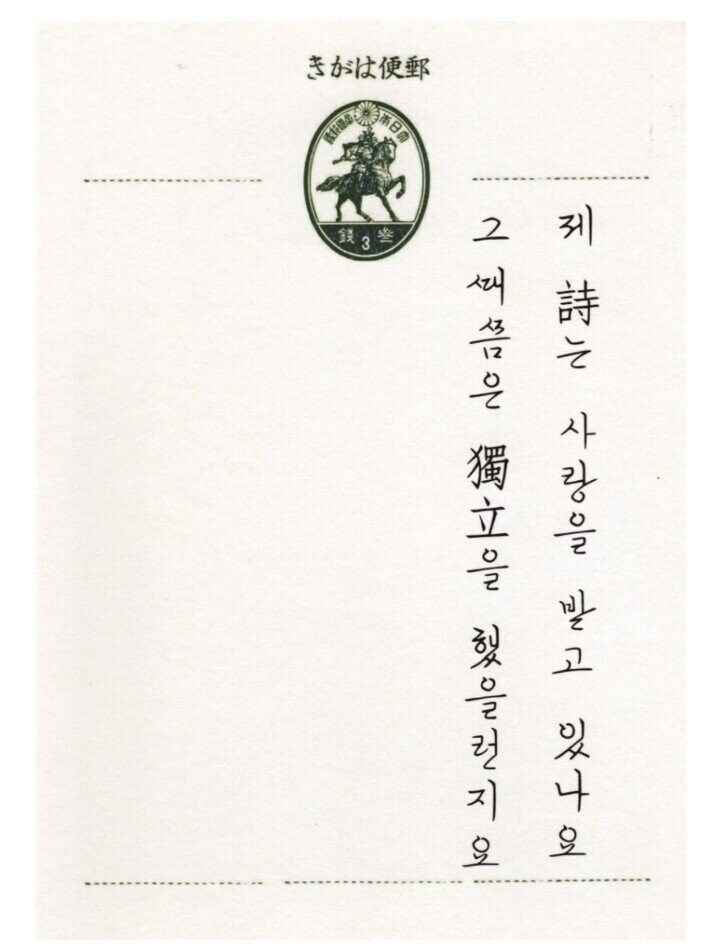 郵便はがき
大日本帝國郵便
叁 3 錢
제 詩는 사랑을 받고 있나요
그 ᄯᅢ쯤은 獨立을 했을런지요